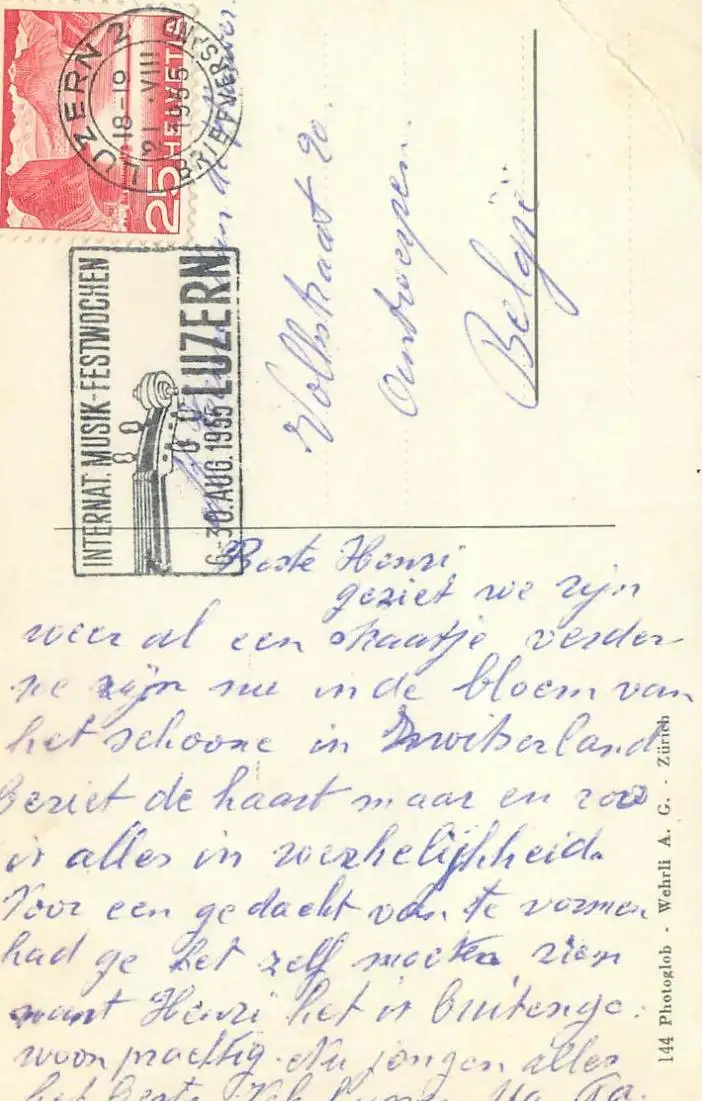 LUZERN 2
18-19
21.VIII
1955
BRIEFVERSAND
HELVETIA
25
INTERNAT. MUSIK-FESTWOCHEN
6.-30.AUG.1955 LUZERN
Volkstraat 20.
Antwerpen.
België
Beste Henri
geziet we zijn
weer al een staatje verder
we zijn nu in de bloem van
het schoone in Zwitserland
Beziet de kaart maar en zoo
is alles in werkelijkheid.
Voor een gedacht van te vormen
had ge het zelf moeten zien
want Henri het is buitenge-
woon prachtig. Nu jongen alles
het beste
144 Photoglob - Wehrli A. G. - Zürich